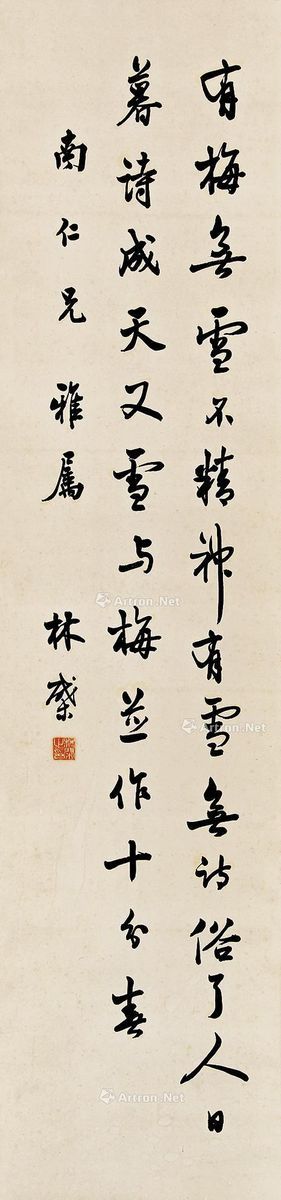 有梅無雪不精神有雪無詩俗了人日
暮詩成天又雪与梅並作十分春
南仁兄 雅属 林棨
Artron.Net
Artron.Net
Artron.Net